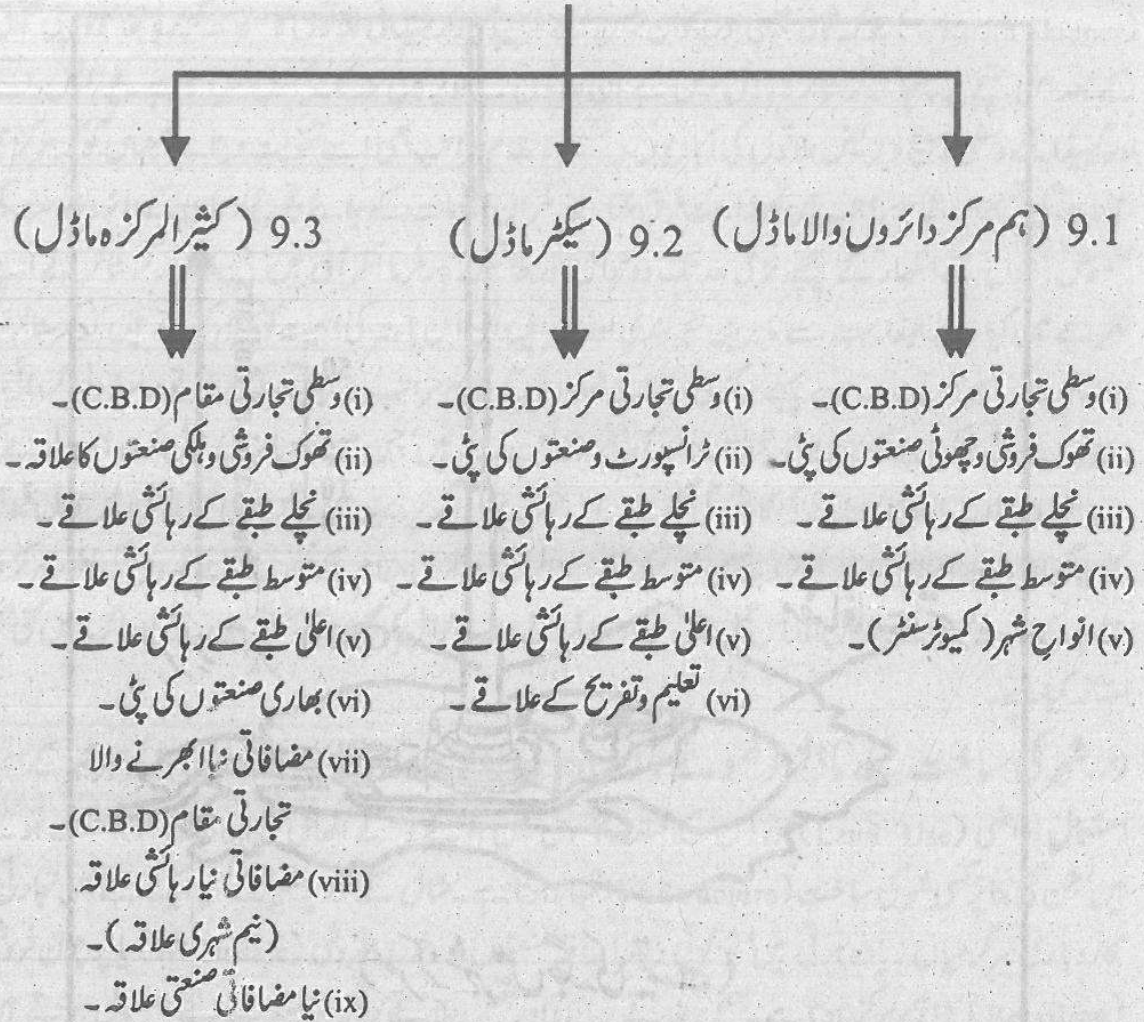 9.1 (ہم مرکز دائروں والا ماڈل)
9.2 (سیکٹر ماڈل)
9.3 (کثیر المرکزہ ماڈل)
(i) وسطی تجارتی مرکز (C.B.D)۔
(ii) تھوک فروشی و چھوٹی صنعتوں کی پٹی۔
(iii) نچلے طبقے کے رہائشی علاقے۔
(iv) متوسط طبقے کے رہائشی علاقے۔
(v) انواحِ شہر (کمیوٹر سنٹر)۔
(i) وسطی تجارتی مرکز (C.B.D)۔
(ii) ٹرانسپورٹ و صنعتوں کی پٹی۔
(iii) نچلے طبقے کے رہائشی علاقے۔
(iv) متوسط طبقے کے رہائشی علاقے۔
(v) اعلیٰ طبقے کے رہائشی علاقے۔
(vi) تعلیم و تفریح کے علاقے۔
(i) وسطی تجارتی مقام (C.B.D)۔
(ii) تھوک فروشی و ہلکی صنعتوں کا علاقہ۔
(iii) نچلے طبقے کے رہائشی علاقے۔
(iv) متوسط طبقے کے رہائشی علاقے۔
(v) اعلیٰ طبقے کے رہائشی علاقے۔
(vi) بھاری صنعتوں کی پٹی۔
(vii) مضافاتی نیا ابھرنے والا
تجارتی مقام (C.B.D)۔
(viii) مضافاتی نیا رہائشی علاقہ
(نیم شہری علاقہ)۔
(ix) نیا مضافاتی صنعتی علاقہ۔